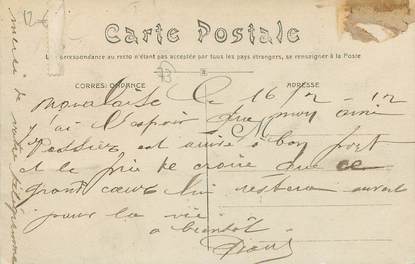 Carte Postale
La Correspondance au recto n'étant pas acceptée par tous les pays étrangers, se renseigner à la Poste
CORRESPONDANCE
ADRESSE
Le 16/2-12
J'ai l'espoir que mon ami
est arrivé à bon port
et le prie de croire que ce
grand cœur lui restera ouvert
pour la vie
a bientôt
merci de votre télégramme